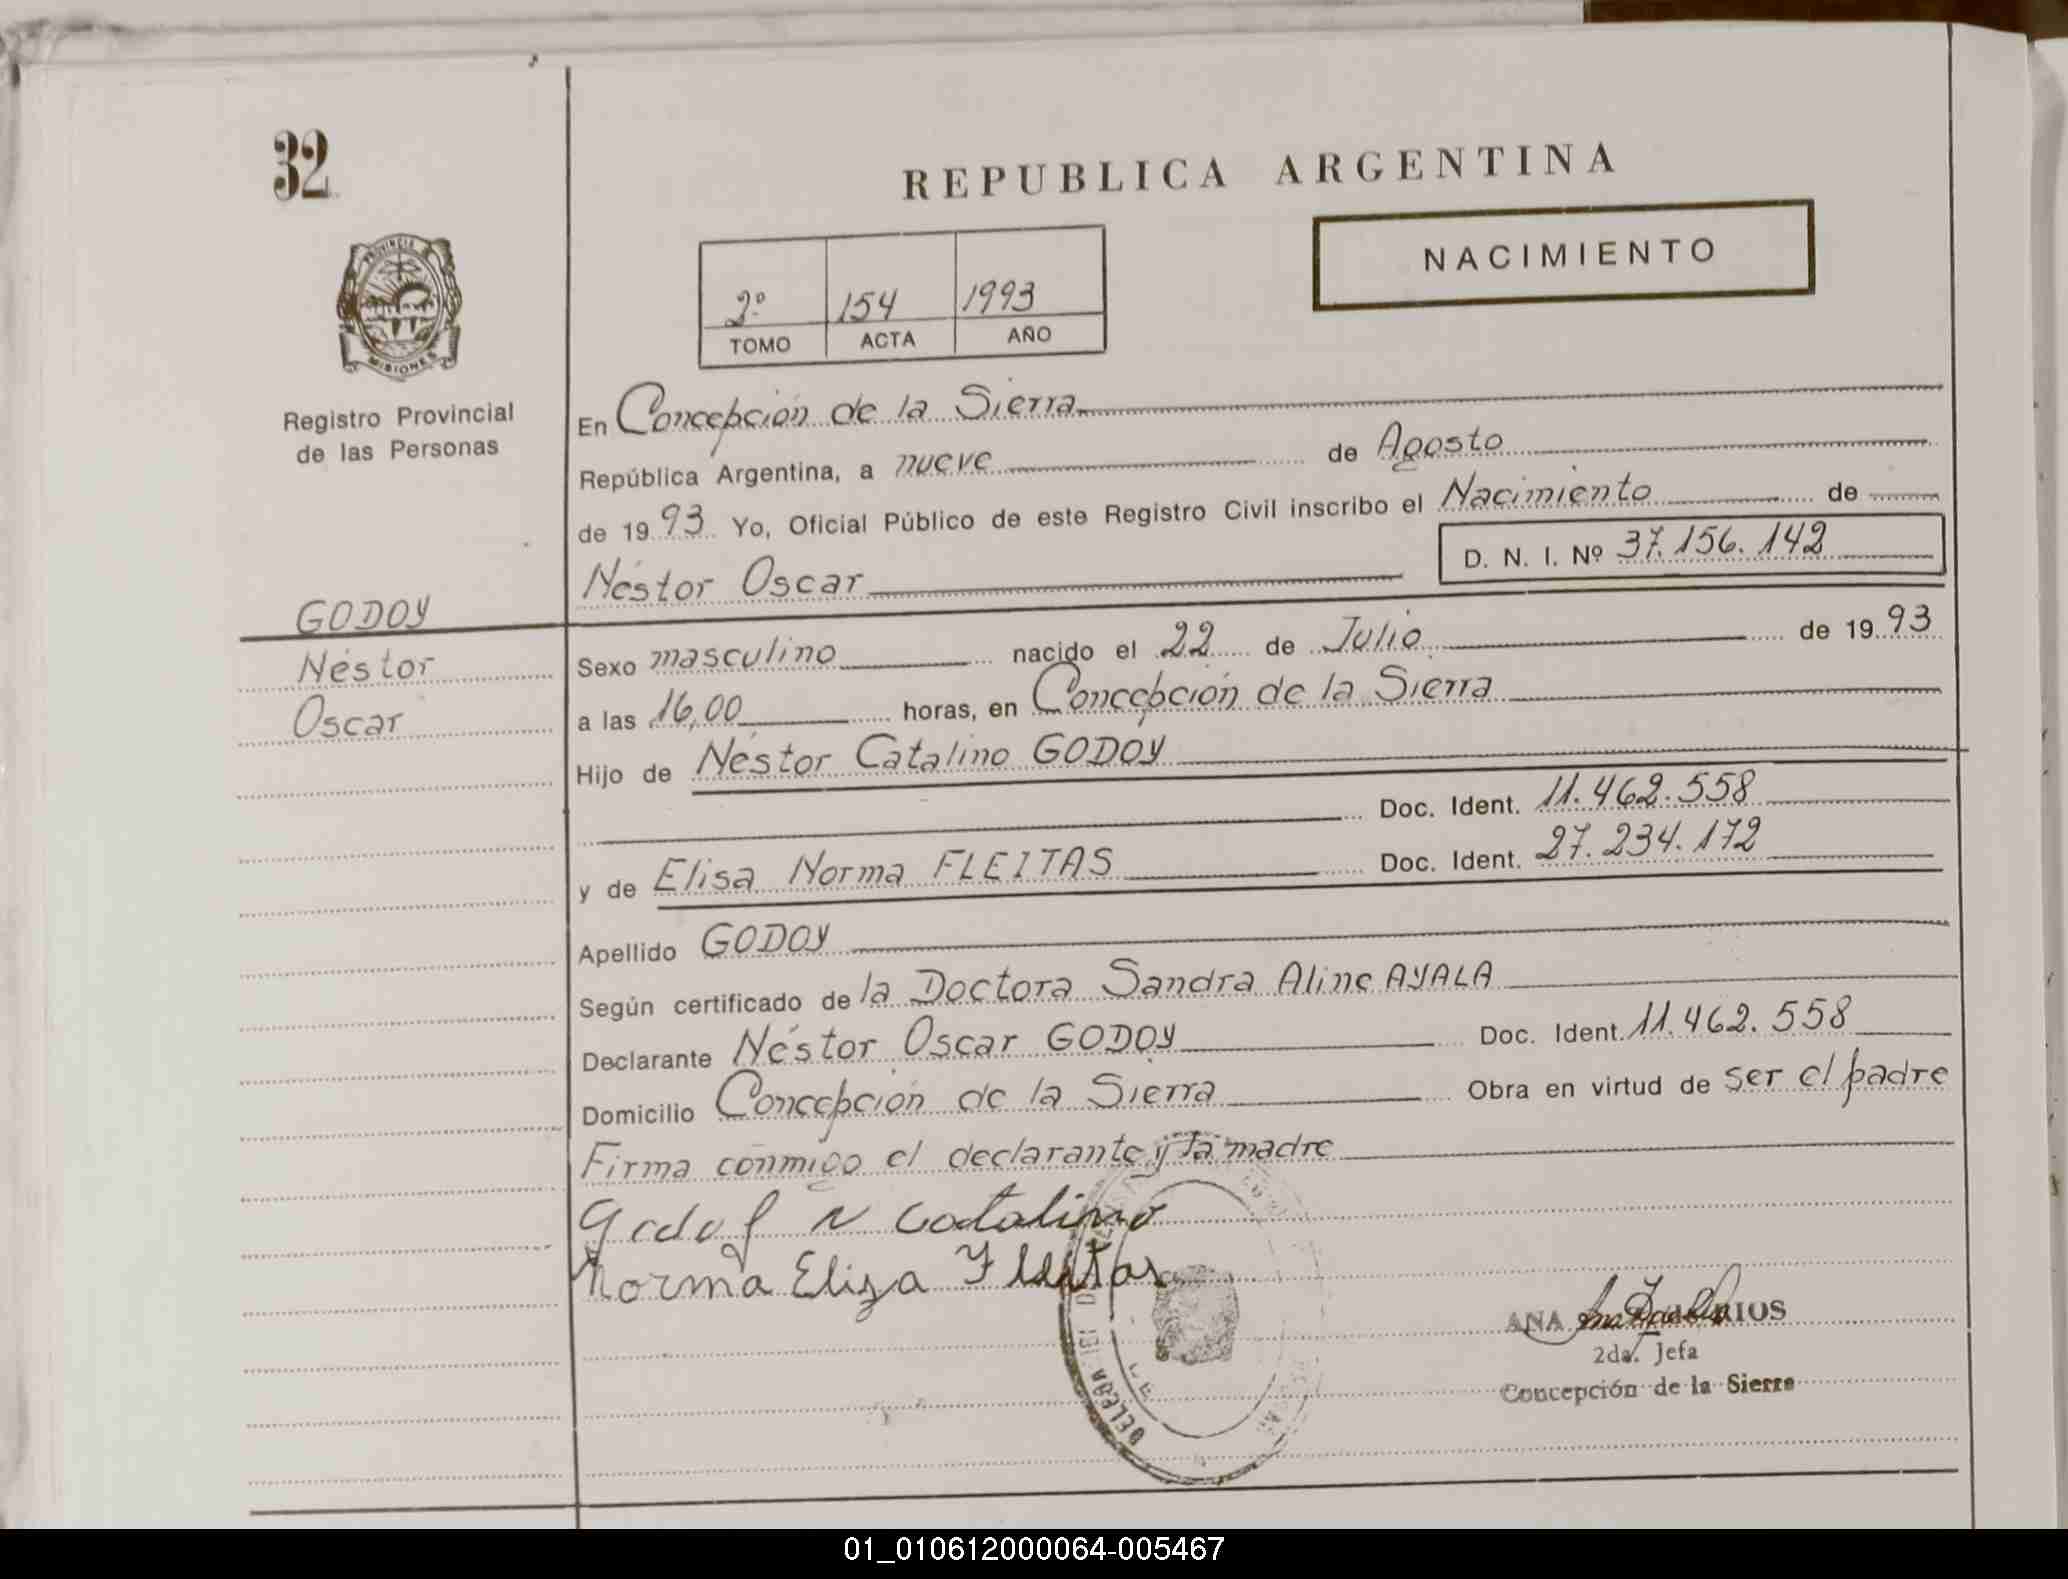 32
REPUBLICA ARGENTINA
NACIMIENTO
PROVINCIA
MISIONES
Registro Provincial
de las Personas
2º 154 1993
TOMO ACTA AÑO
En Concepción de la Sierra
República Argentina, a nueve de Agosto
de 1993 Yo, Oficial Público de este Registro Civil inscribo el Nacimiento de
Néstor Oscar D. N. I. Nº 37.156.142
GODOY
Néstor
Oscar
Sexo masculino nacido el 22 de Julio de 1993
a las 16,00 horas, en Concepción de la Sierra
Hijo de Néstor Catalino GODOY
Doc. Ident. 11.462.558
y de Elisa Norma FLEITAS Doc. Ident. 27.234.172
Apellido GODOY
Según certificado de la Doctora Sandra Aline AYALA
Declarante Néstor Oscar GODOY Doc. Ident. 11.462.558
Domicilio Concepción de la Sierra Obra en virtud de ser el padre
Firma conmigo el declarante y la madre
Godoy N Catalino
Norma Elisa Fleitas
ANA RIOS
2da. Jefa
Concepción de la Sierra
01_010612000064-005467